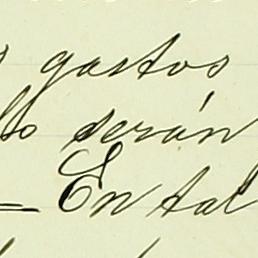 gastos
serán
En tal